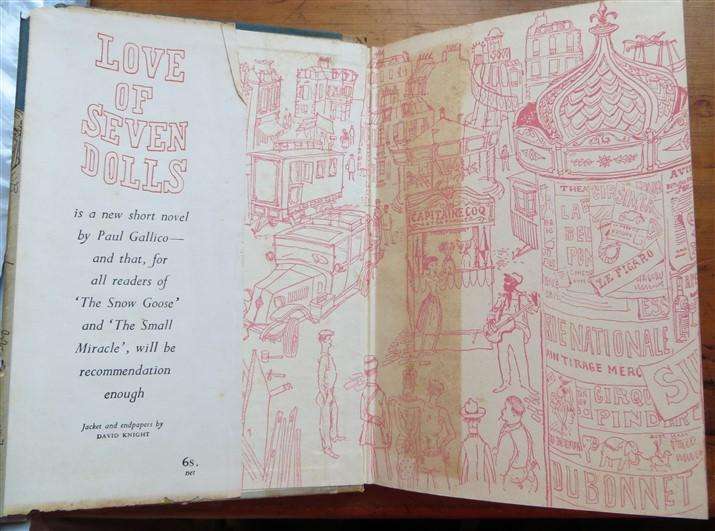 LOVE
OF
SEVEN
DOLLS
is a new short novel
by Paul Gallico—
and that, for
all readers of
'The Snow Goose'
and 'The Small
Miracle', will be
recommendation
enough
Jacket and endpapers by
DAVID KNIGHT
6s.
net
CAPITAINE COQ
THEA
LA
BEL
LE FIGARO
ESS
RIE NATIONALE
TIRAGE MERC
CIRQU
PINDARE
DUBONNET